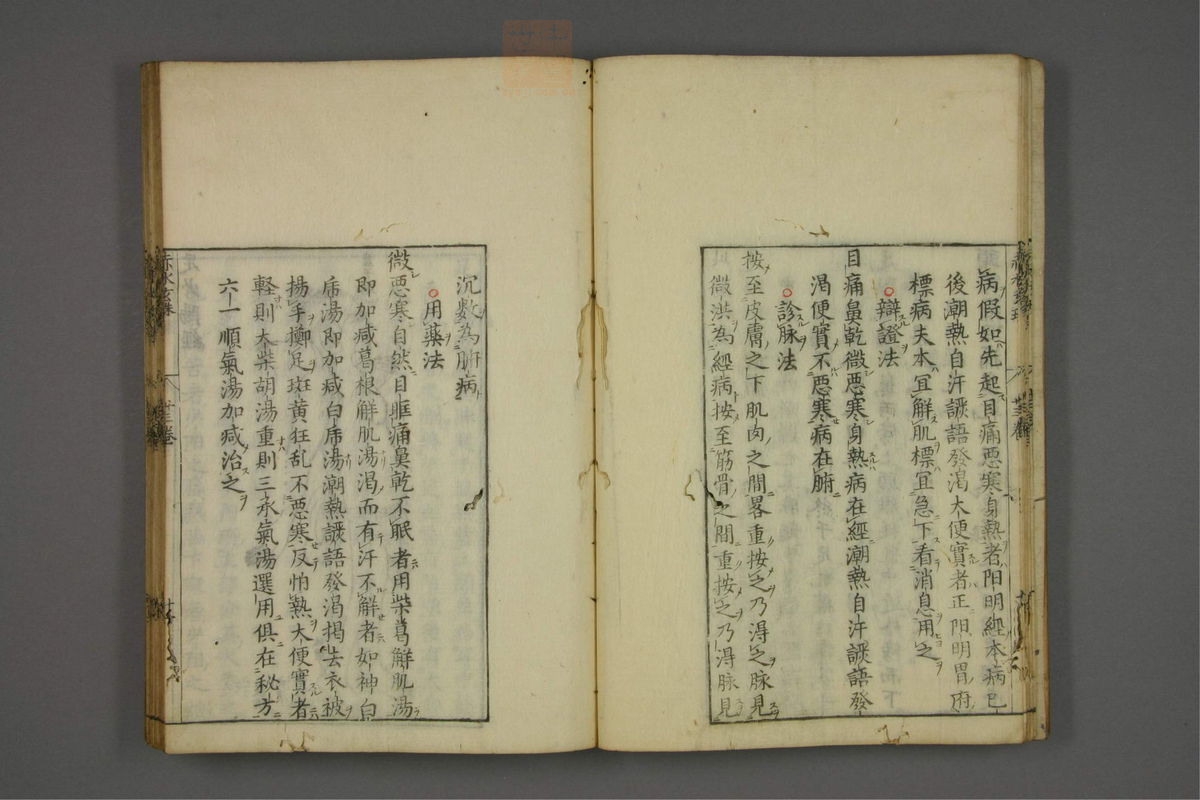 病假如先起目痛悪寒身熱者陽明經本病已
後潮熱自汗譫語發渇大便實者正陽明胃府
標病夫本宜鮮肌標宜急下看消息用之
辯證法
目痛鼻乾微悪寒身熱病在經潮熱自汗譫語發
渇便實不悪寒病在腑
診脉法
按至皮膚之下肌肉之間畧重按之乃淂之脉見
微洪為經病按至筋骨之間重按之乃淂脉見
沉数為腑病
用藥法
微悪寒自然目眶痛鼻乾不眠者用柴葛觧肌湯
即加减葛根觧肌湯渇而有汗不觧者如神白
虎湯即加减白虎湯潮熱譫語發渇揭去衣被
揚手擲足斑黄狂乱不悪寒反怕熱大便實者
軽則大柴胡湯重則三承氣湯選用俱在秘方
六一順氣湯加减治之
赤水玄珠
廿三卷